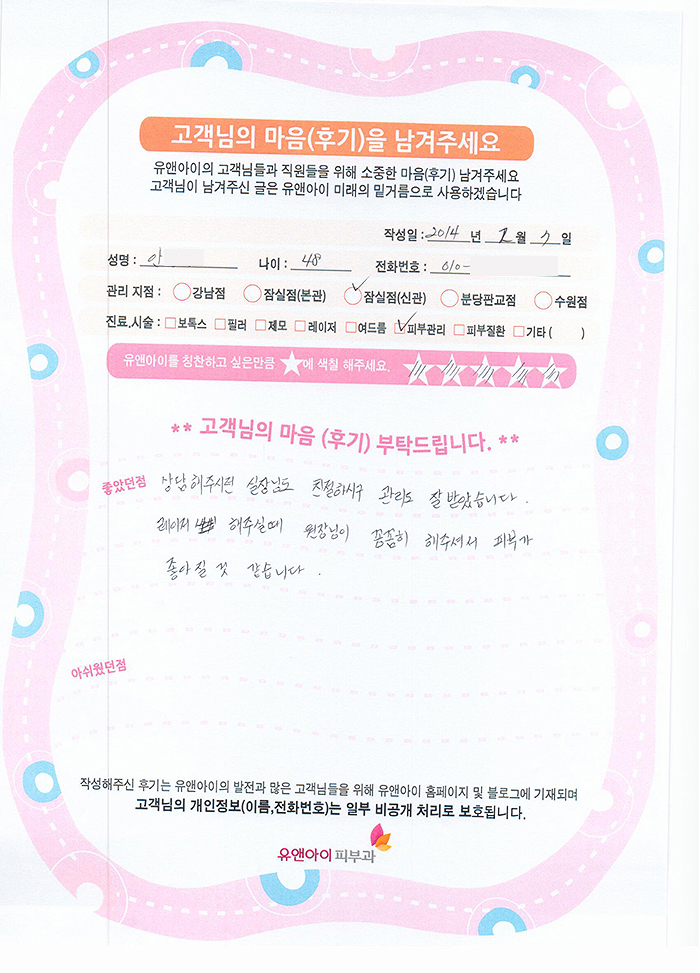 고객님의 마음(후기)을 남겨주세요
유앤아이의 고객님들과 직원들을 위해 소중한 마음(후기) 남겨주세요
고객님이 남겨주신 글은 유앤아이 미래의 밑거름으로 사용하겠습니다
작성일 : 2014 년 2월 5 일
성명 : 안 나이 : 48 전화번호 : 010-
관리 지점 : 강남점 잠실점(본관) 잠실점(신관) 분당판교점 수원점
진료,시술 : 보톡스 필러 제모 레이저 여드름 피부관리 피부질환 기타 ( )
유앤아이를 칭찬하고 싶은만큼 ★에 색칠 해주세요.
** 고객님의 마음 (후기) 부탁드립니다. **
좋았던점 상담해주시던 실장님도 친절하시구 관리도 잘 받았습니다.
레이저 해주실때 원장님이 꼼꼼히 해주셔서 피부가
좋아질 것 같습니다.
아쉬웠던점
작성해주신 후기는 유앤아이의 발전과 많은 고객님들을 위해 유앤아이 홈페이지 및 블로그에 기재되며
고객님의 개인정보(이름,전화번호)는 일부 비공개 처리로 보호됩니다.
유앤아이 피부과